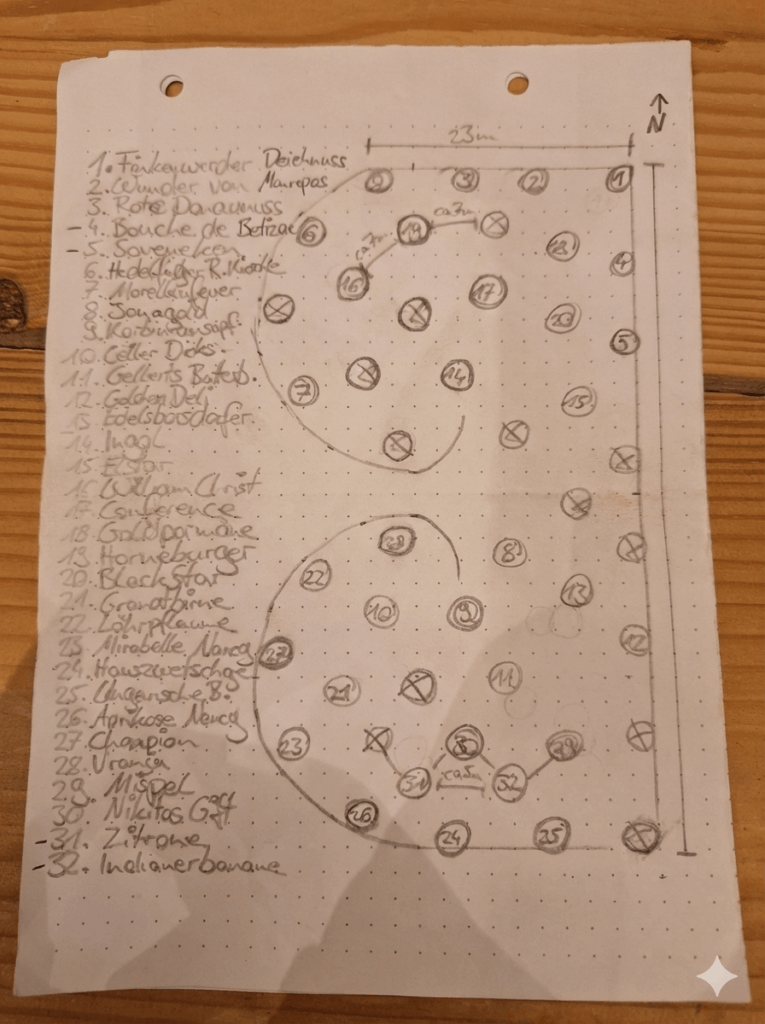 N
23m
1. Finkenwerder Deichnuss
2. Wunder von Maurepas
3. Rote Donaunuss
- 4. Bouche de Betizac
- 5.
6. Hedelfinger R. Kirsche
7. Morellenfeuer
8.
9.
10. Celler Dicks.
11. Gellerts Butterb.
12. Golden Deli
13. Edelborsdorfer
14.
15. Elstar
16. William Christ
17. Conference
18. Goldparmäne
19. Horneburger
20. Blackstar
21. Granatbirne
22. Löhrpflaume
23. Mirabelle Nancy
24. Hauszwetschge
25. Ungarische B.
26. Aprikose Nancy
27. Champion
28. Vranja
29. Mispel
30. Nikitas Gift
- 31. Zitrone
- 32. Indianerbanane
9 3 2 1
6 19 ca7m
ca7m 18 4
16 17
20
5
14
7 15
28 8
22 13
10 9
12
27
21 11
23 30 29
31 ca5m 32
26
24 25